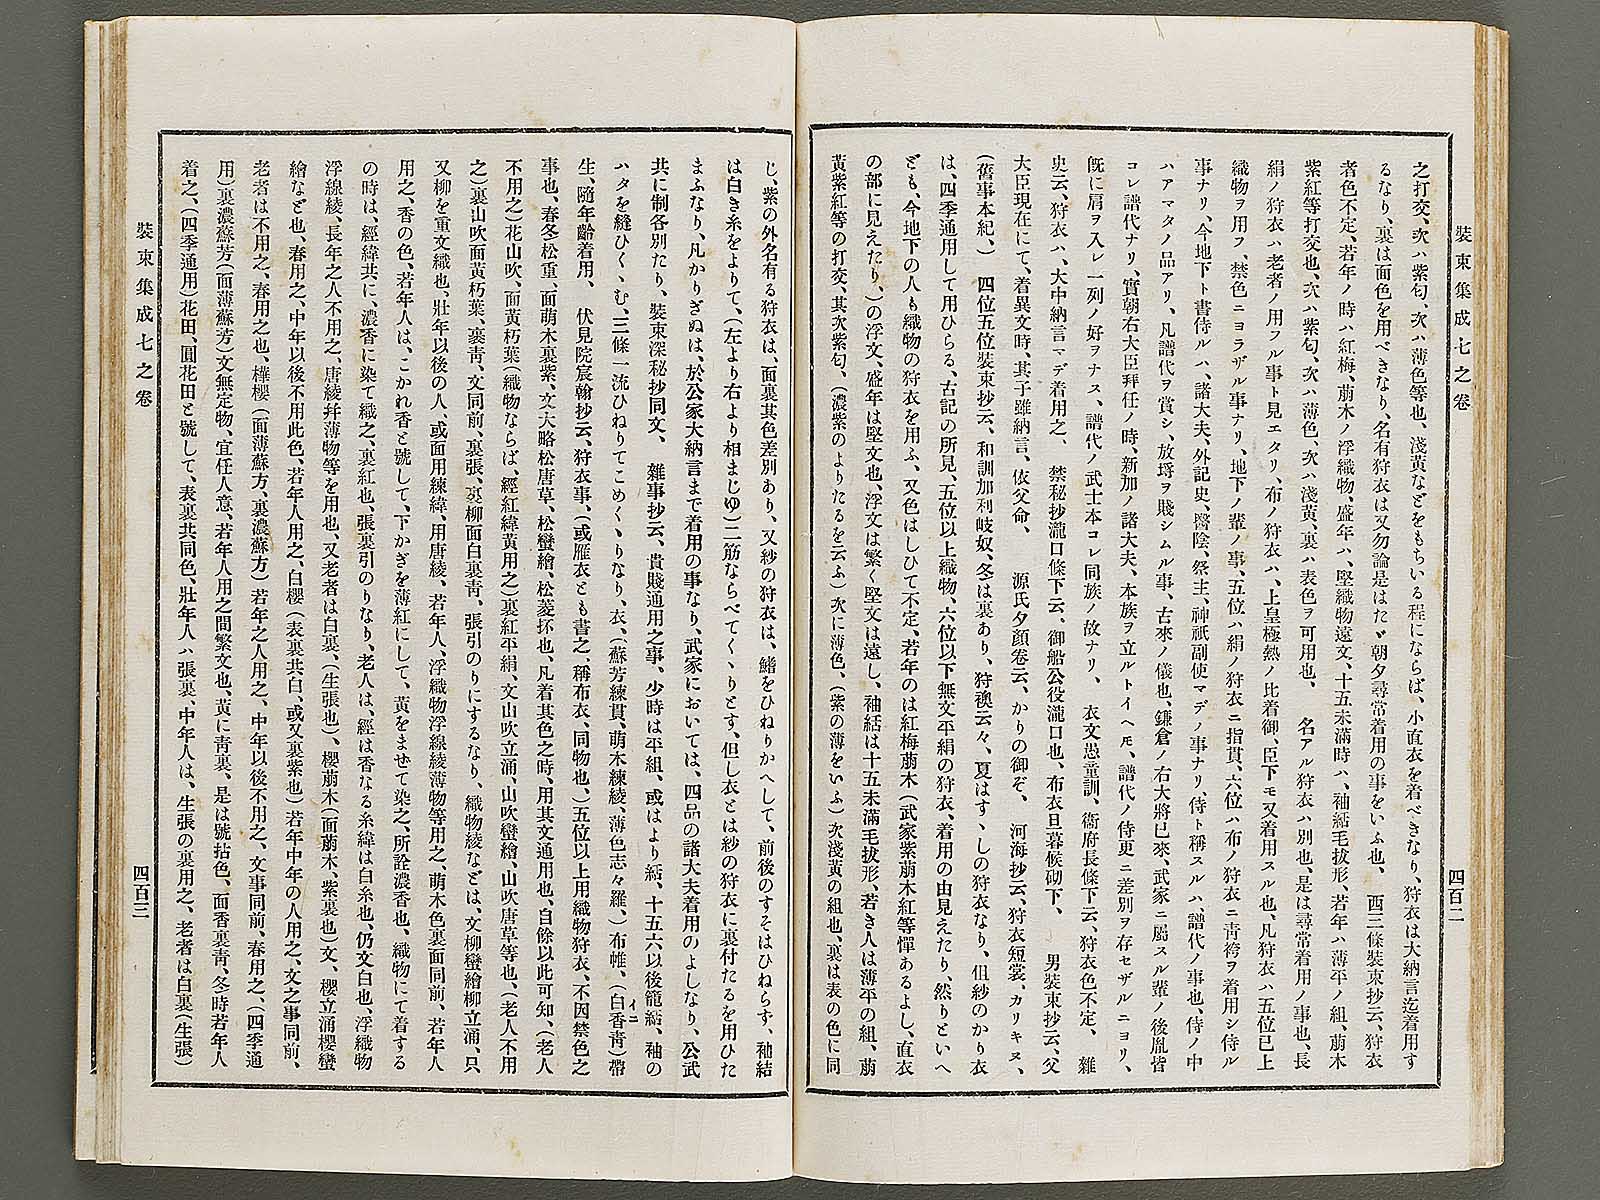 裝束集成七之卷
四百二
之打交、次ハ紫匂、次ハ薄色等也、淺黃などをもちいる程にならば、小直衣を着べきなり、狩衣は大納言迄着用す
るなり、裏は面色を用べきなり、名有狩衣は又勿論是はたゞ朝夕尋常着用の事をいふ也、 西三條裝束抄云、狩衣
者色不定、若年ノ時ハ紅梅、萠木ノ浮織物、盛年ハ、堅織物遠文、十五未滿時ハ、袖結毛拔形、若年ハ薄平ノ組、萠木
紫紅等打交也、次ハ紫匂、次ハ薄色、次ハ淺黃、裏ハ表色ヲ可用也、 名アル狩衣ハ別也、是は尋常着用ノ事也、長
絹ノ狩衣ハ老者ノ用フル事ト見エタリ、布ノ狩衣ハ、上皇極熱ノ比着御、臣下モ又着用スル也、凡狩衣ハ五位已上
織物ヲ用フ、禁色ニヨラザル事ナリ、地下ノ輩ノ事、五位ハ絹ノ狩衣ニ指貫、六位ハ布ノ狩衣ニ靑袴ヲ着用シ侍ル
事ナリ、今地下ト書侍ルハ、諸大夫、外記史、醫陰、祭主、神祇副使マデノ事ナリ、侍ト稱スルハ譜代ノ事也、侍ノ中
ハアマタノ品アリ、凡譜代ヲ賞シ、放埒ヲ賤シムル事、古來ノ儀也、鎌倉ノ右大將已來、武家ニ屬スル輩ノ後胤皆
コレ譜代ナリ、實朝右大臣拜任ノ時、新加ノ諸大夫、本族ヲ立ルトイヘ𪜈、譜代ノ侍更ニ差別ヲ存セザルニヨリ、
旣に肩ヲ入レ一列ノ好ヲナス、譜代ノ武士本コレ同族ノ故ナリ、 衣文忩童訓、衞府長條下云、狩衣色不定、 雜
史云、狩衣ハ、大中納言マデ着用之、 禁秘抄瀧口條下云、御船公役瀧口也、布衣旦暮候砌下、 男裝束抄云、父
大臣現在にて、着異文時、其子雖納言、依父命、 源氏夕顏卷云、かりの御ぞ、 河海抄云、狩衣短裳、カリキヌ、
(舊事本紀、) 四位五位裝束抄云、和訓加利岐奴、冬は裏あり、狩襖云々、夏はすゝしの狩衣なり、但紗のかり衣
は、四季通用して用ひらる、古記の所見、五位以上織物、六位以下無文平絹の狩衣、着用の由見えたり、然りといへ
ども、今地下の人も織物の狩衣を用ふ、又色はしひて不定、若年のは紅梅萠木(武家紫萠木紅等憚あるよし、直衣
の部に見えたり、)の浮文、盛年は堅文也、浮文は繁く堅文は遠し、袖結は十五未滿毛拔形、若き人は薄平の組、萠
黃紫紅等の打交、其次紫匂、(濃紫のよりたるを云ふ)次に薄色、(紫の薄をいふ)次淺黃の組也、裏は表の色に同
じ、紫の外名有る狩衣は、面裏其色差別あり、又紗の狩衣は、鰭をひねりかへして、前後のすそはひねらず、袖結
は白き糸をよりて、(左より右より相まじゆ)二筋ならべてくゝりとす、但し衣とは紗の狩衣に裏付たるを用ひた
まふなり、凡かりぎぬは、於公家大納言まで着用の事なり、武家においては、四品の諸大夫着用のよしなり、公武
共に制各別たり、裝束深秘抄同文、 雜事抄云、貴賤通用之事、少時は平組、或はより結、十五六以後籠結、袖の
ハタを縫ひくゝむ、三條一流ひねりてこめくゝりなり、衣、(蘇芳練貫、萠木練綾、薄色志々羅、)布帷、(白香靑)帶
イニ
生、隨年齡着用、 伏見院宸翰抄云、狩衣事、(或雁衣とも書之、稱布衣、同物也、)五位以上用織物狩衣、不因禁色之
事也、春冬松重、面萠木裏紫、文大略松唐草、松蠻繪、松菱抔也、凡着其色之時、用其文通用也、自餘以此可知、(老人
不用之)花山吹、面黃朽葉(織物ならば、經紅緯黃用之)裏紅平絹、文山吹立涌、山吹蠻繪、山吹唐草等也、(老人不用
之)裏山吹面黃朽葉、裏靑、文同前、裏張、裏柳面白裏靑、張引のりにするなり、織物綾などは、文柳蠻繪柳立涌、只
又柳を重文織也、壯年以後の人、或面用練緯、用唐綾、若年人、浮織物浮線綾薄物等用之、萠木色裏面同前、若年人
用之、香の色、若年人は、こかれ香と號して、下かぎを薄紅にして、黃をませて染之、所詮濃香也、織物にて着する
の時は、經緯共に、濃香に染て織之、裏紅也、張裏引のりなり、老人は、經は香なる糸緯は白糸也、仍文白也、浮織物
浮線綾、長年之人不用之、唐綾幷薄物等を用也、又老者は白裏、(生張也)、櫻萠木(面萠木、紫裏也)文、櫻立涌櫻蠻
繪など也、春用之、中年以後不用此色、若年人用之、白櫻(表裏共白、或又裏紫也)若年中年の人用之、文之事同前、
老者は不用之、春用之也、樺櫻(面薄蘇方、裏濃蘇方)若年之人用之、中年以後不用之、文事同前、春用之、(四季通
用)裏濃蘇芳(面薄蘇芳)文無定物、宜任人意、若年人用之間繁文也、黃に靑裏、是は號拈色、面香裏靑、冬時若年人
着之、(四季通用)花田、圓花田と號して、表裏共同色、壯年人ハ張裏、中年人は、生張の裏用之、老者は白裏(生張)
裝束集成七之卷
四百三